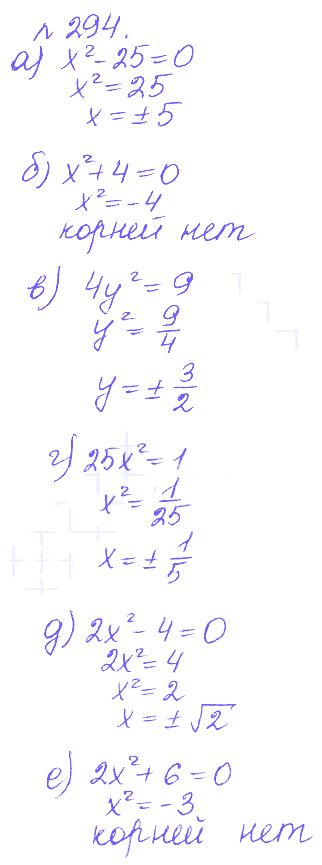 № 294.
а) x² - 25 = 0
x² = 25
x = ± 5
б) x² + 4 = 0
x² = -4
корней нет
в) 4y² = 9
y² = 9/4
y = ± 3/2
г) 25x² = 1
x² = 1/25
x = ± 1/5
д) 2x² - 4 = 0
2x² = 4
x² = 2
x = ± √2
е) 2x² + 6 = 0
x² = -3
корней нет